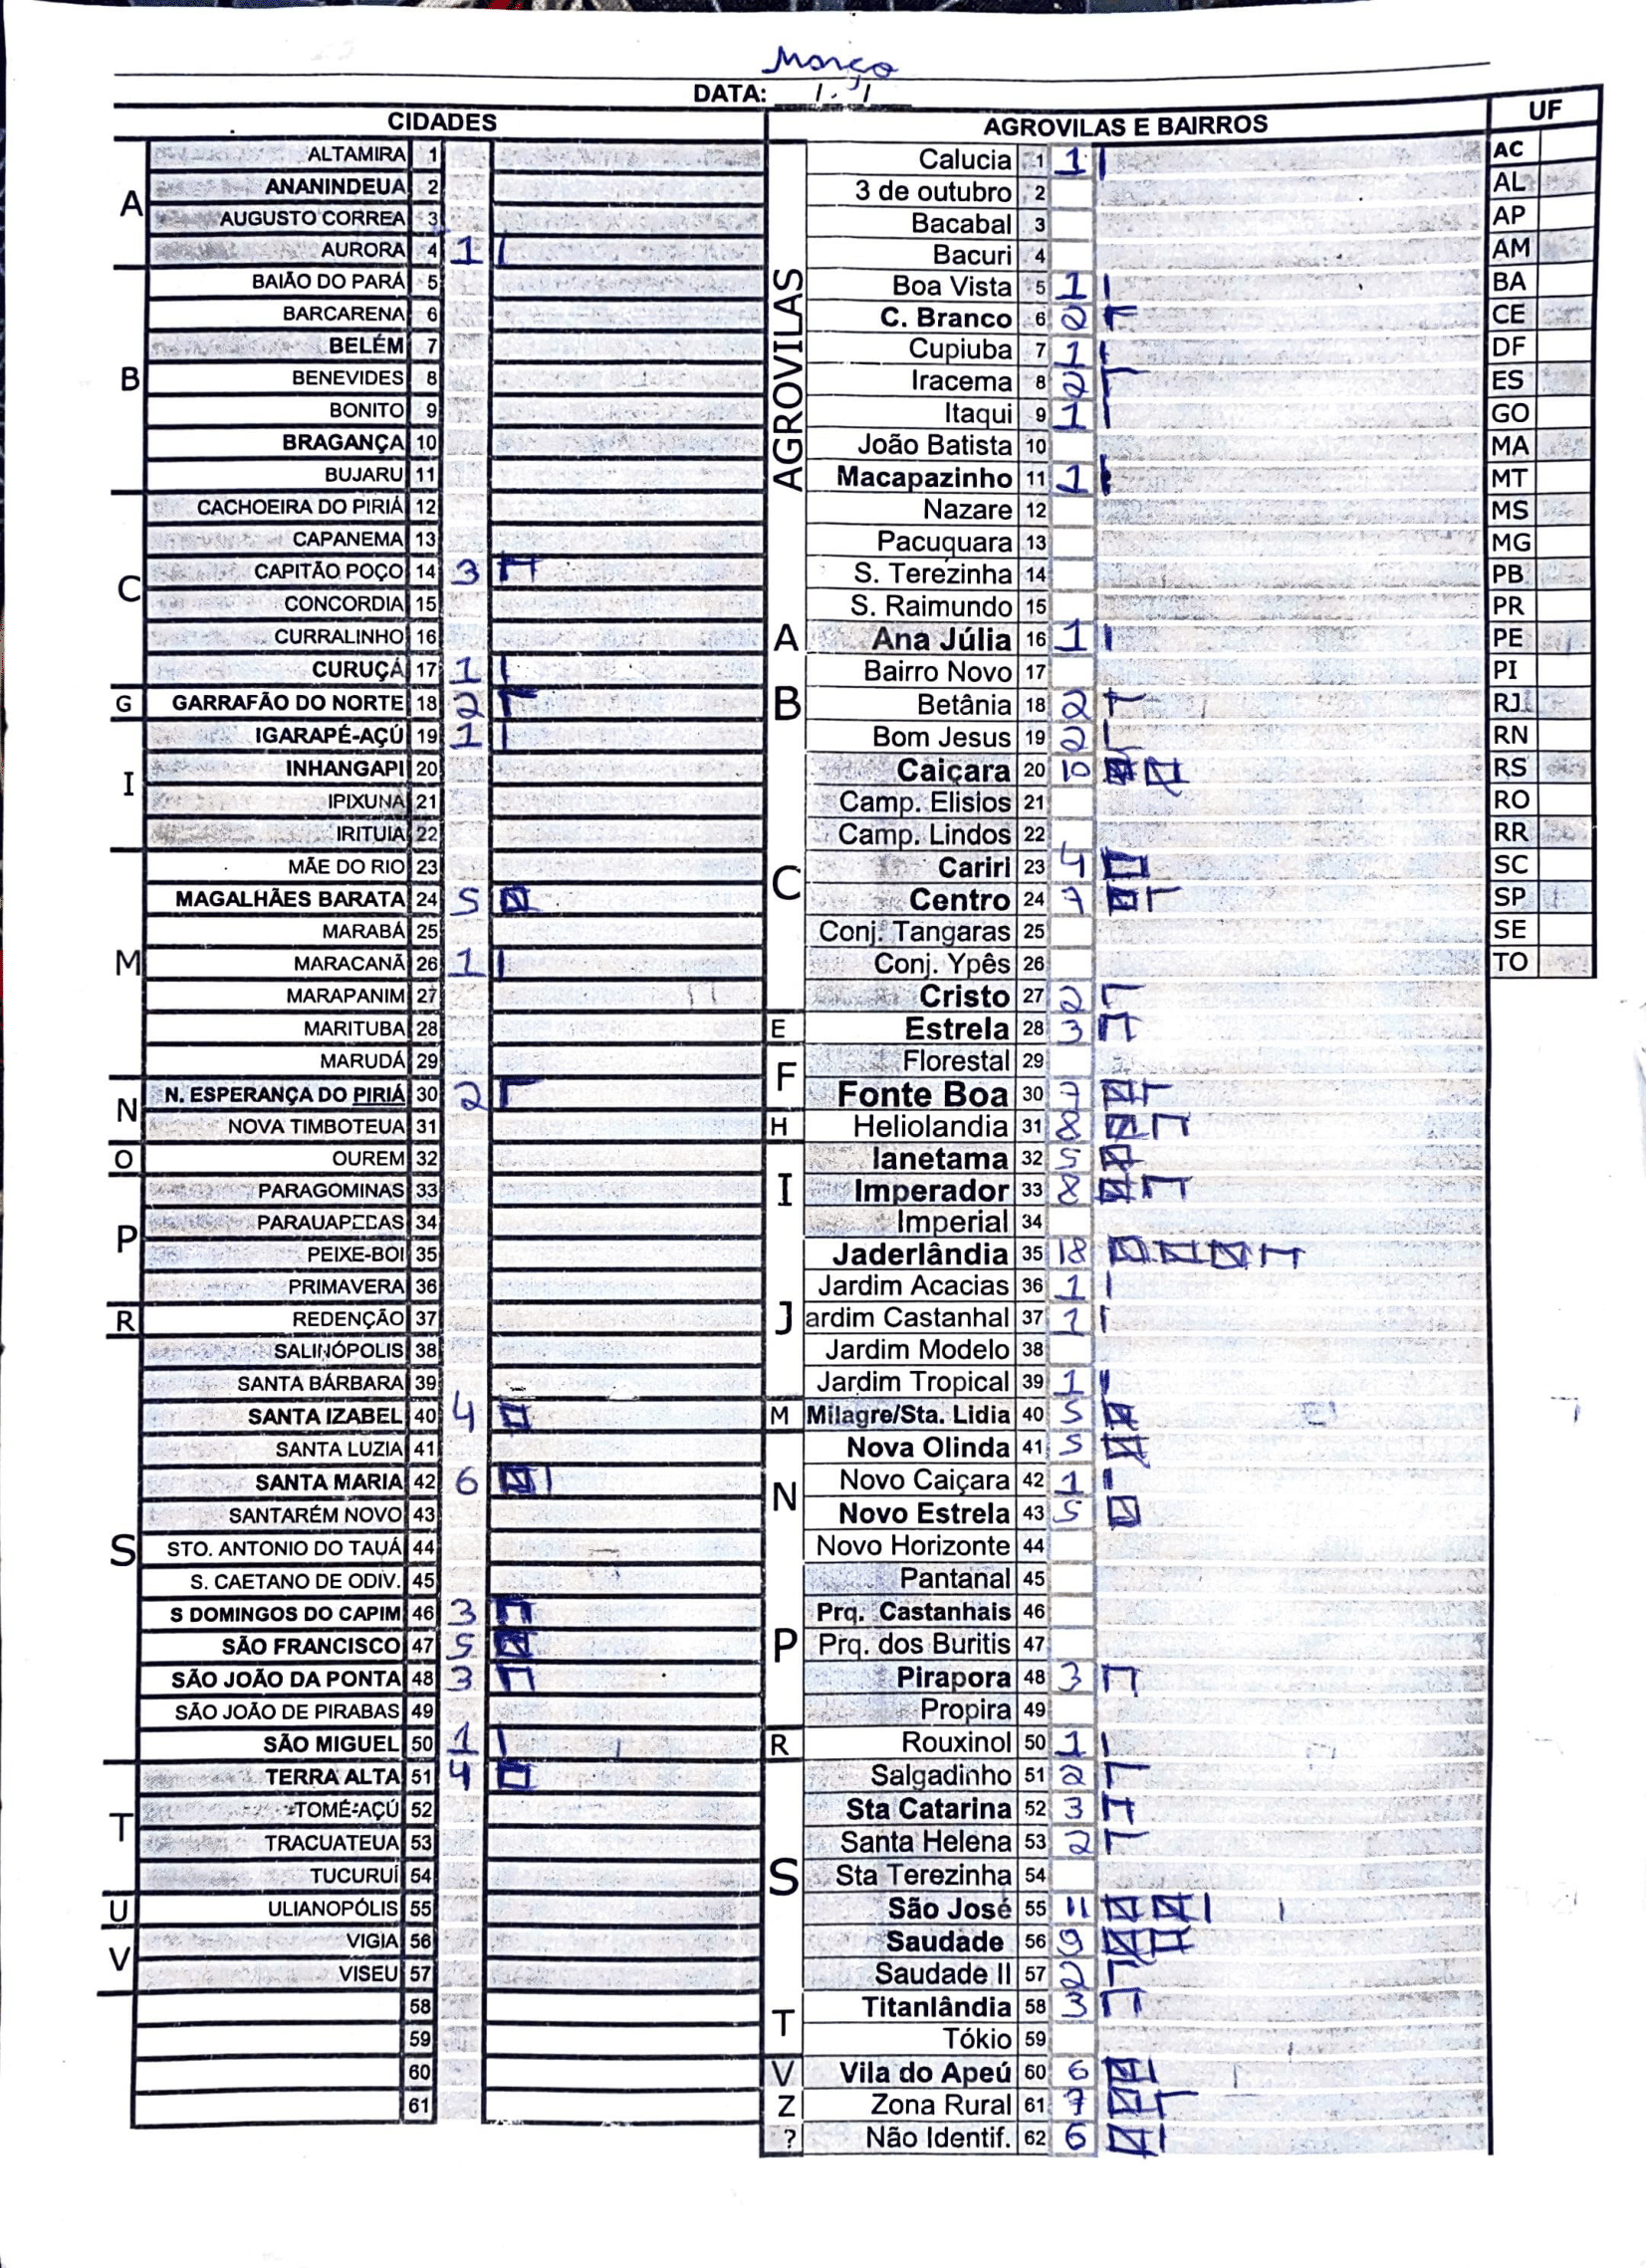 Março
DATA: / /
CIDADES
AGROVILAS E BAIRROS
UF
A
ALTAMIRA 1
ANANINDEUA 2
AUGUSTO CORREA 3
AURORA 4 1
B
BAIÃO DO PARÁ 5
BARCARENA 6
BELÉM 7
BENEVIDES 8
BONITO 9
BRAGANÇA 10
BUJARU 11
C
CACHOEIRA DO PIRIÁ 12
CAPANEMA 13
CAPITÃO POÇO 14 3
CONCORDIA 15
CURRALINHO 16
CURUÇÁ 17 1
G
GARRAFÃO DO NORTE 18 2
I
IGARAPÉ-AÇÚ 19 1
INHANGAPI 20
IPIXUNA 21
IRITUIA 22
M
MÃE DO RIO 23
MAGALHÃES BARATA 24 5
MARABÁ 25
MARACANÃ 26 1
MARAPANIM 27
MARITUBA 28
MARUDÁ 29
N
N. ESPERANÇA DO PIRIÁ 30 2
NOVA TIMBOTEUA 31
O
OUREM 32
P
PARAGOMINAS 33
PARAUAPEBAS 34
PEIXE-BOI 35
PRIMAVERA 36
R
REDENÇÃO 37
S
SALINÓPOLIS 38
SANTA BÁRBARA 39
SANTA IZABEL 40 4
SANTA LUZIA 41
SANTA MARIA 42 6
SANTARÉM NOVO 43
STO. ANTONIO DO TAUÁ 44
S. CAETANO DE ODIV. 45
S DOMINGOS DO CAPIM 46 3
SÃO FRANCISCO 47 5
SÃO JOÃO DA PONTA 48 3
SÃO JOÃO DE PIRABAS 49
SÃO MIGUEL 50 1
T
TERRA ALTA 51 4
TOMÉ-AÇÚ 52
TRACUATEUA 53
TUCURUÍ 54
U
ULIANOPÓLIS 55
V
VIGIA 56
VISEU 57
58
59
60
61
AGROVILAS
Calucia 1 1
3 de outubro 2
Bacabal 3
Bacuri 4
Boa Vista 5 1
C. Branco 6 2
Cupiuba 7 1
Iracema 8 2
Itaqui 9 1
João Batista 10
Macapazinho 11 1
Nazare 12
Pacuquara 13
S. Terezinha 14
S. Raimundo 15
A
Ana Júlia 16 1
Bairro Novo 17
B
Betânia 18 2
Bom Jesus 19 2
Caiçara 20 10
Camp. Elisios 21
Camp. Lindos 22
C
Cariri 23 4
Centro 24 7
Conj. Tangaras 25
Conj. Ypês 26
Cristo 27 2
E
Estrela 28 3
F
Florestal 29
Fonte Boa 30 7
H
Heliolandia 31 8
I
Ianetama 32 5
Imperador 33 8
Imperial 34
Jaderlândia 35 18
Jardim Acacias 36 1
J
ardim Castanhal 37 1
Jardim Modelo 38
Jardim Tropical 39 1
M
Milagre/Sta. Lidia 40 5
N
Nova Olinda 41 5
Novo Caiçara 42 1
Novo Estrela 43 5
Novo Horizonte 44
Pantanal 45
P
Prq. Castanhais 46
Prq. dos Buritis 47
Pirapora 48 3
Propira 49
R
Rouxinol 50 1
S
Salgadinho 51 2
Sta Catarina 52 3
Santa Helena 53 2
Sta Terezinha 54
São José 55 11
Saudade 56 9
Saudade II 57 2
T
Titanlândia 58 3
Tókio 59
V
Vila do Apeú 60 6
Z
Zona Rural 61 7
?
Não Identif. 62 6
AC
AL
AP
AM
BA
CE
DF
ES
GO
MA
MT
MS
MG
PB
PR
PE
PI
RJ
RN
RS
RO
RR
SC
SP
SE
TO